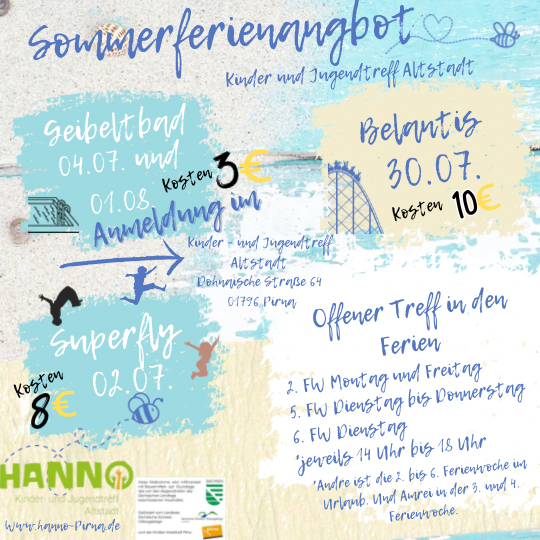 Sommerferienangbot
Kinder und Jugendtreff Altstadt
Geibeltbad
04.07. und
01.08.
Kosten 3€
Belantis
30.07.
Kosten 10€
Anmeldung im
Kinder - und Jugendtreff
Altstadt
Dohnaische Straße 64
01796 Pirna
Superfly
02.07.
Kosten
8€
Offener Treff in den
Ferien
2. FW Montag und Freitag
5. FW Dienstag bis Donnerstag
6. FW Dienstag
*jeweils 14 Uhr bis 18 Uhr
*Andre ist die 2. bis 6. Ferienwoche im
Urlaub. Und Amrei in der 3. und 4.
Ferienwoche.
HANNO
Kinder- und Jugendtreff
Altstadt
www.hanno-Pirna.de
Diese Maßnahme wird mitfinanziert
mit Steuermitteln auf Grundlage
des von den Abgeordneten des
Sächsischen Landtags
beschlossenen Haushaltes.
SACHSEN